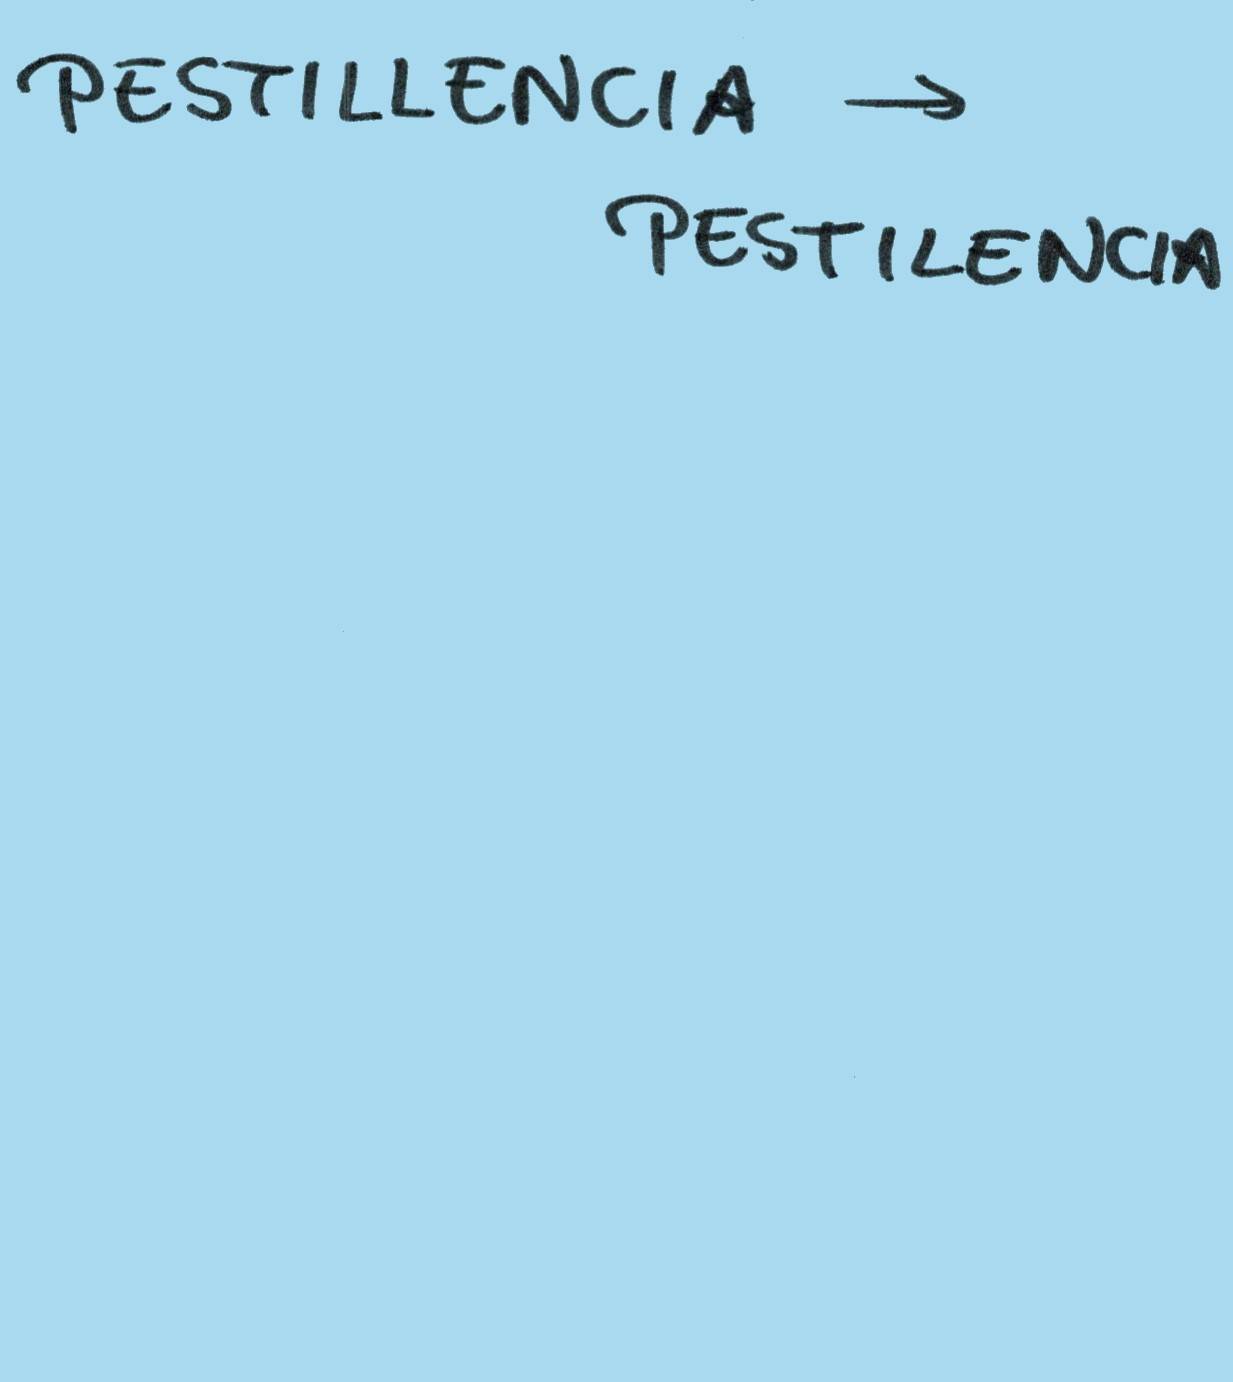 PESTILLENCIA →
PESTILENCIA